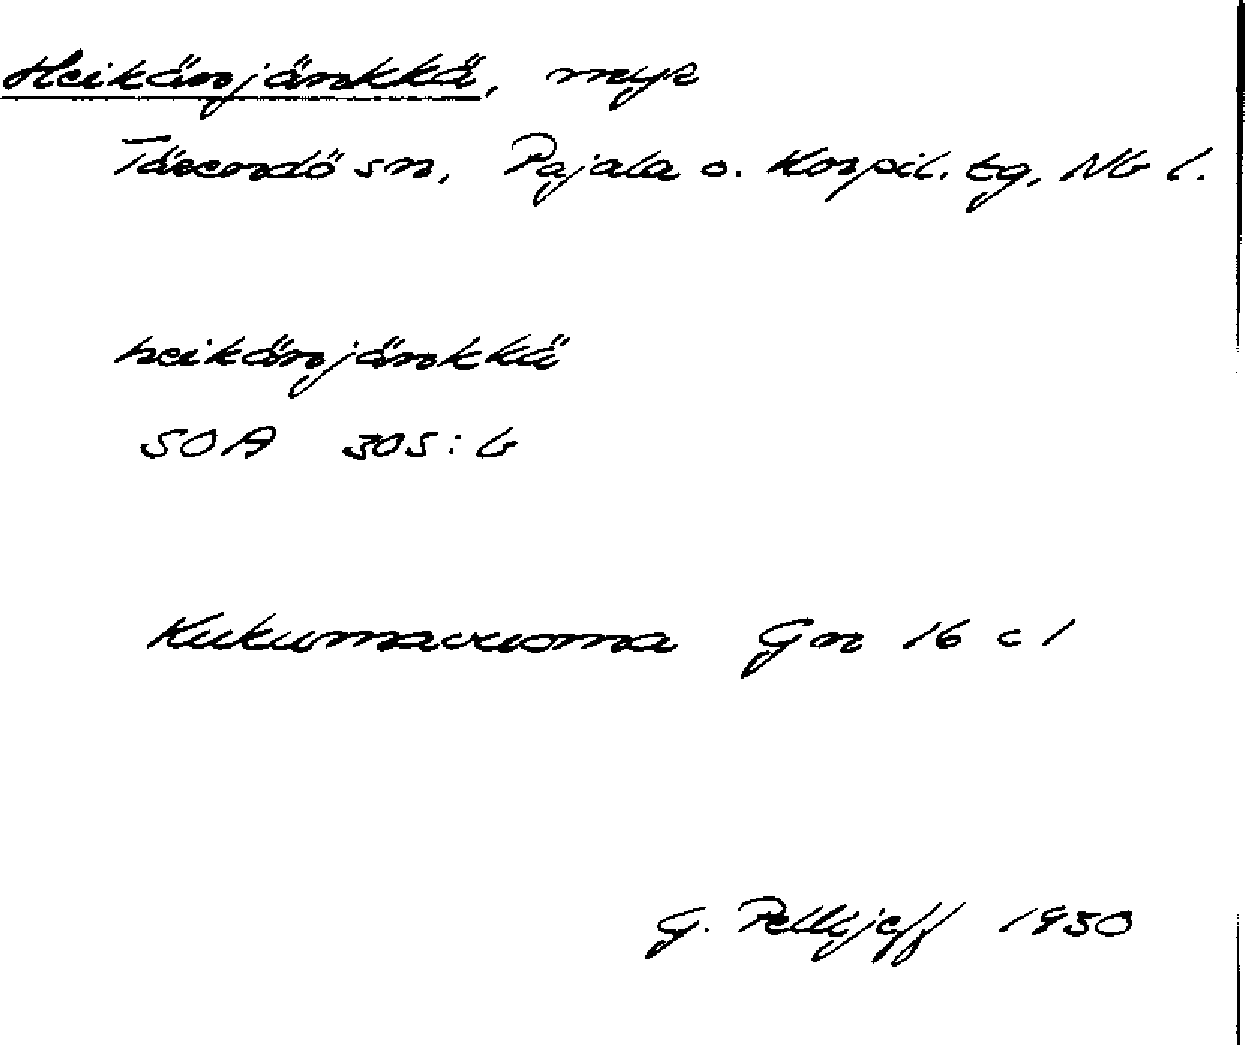 Heikänjänkkä, myr
Tärendö sn, Pajala o. Korpil. tg, Nb l.
heikänjänkkä
SOA 305:6
Kukumavuoma Gn 16 c 1
G. Pellijeff 1950